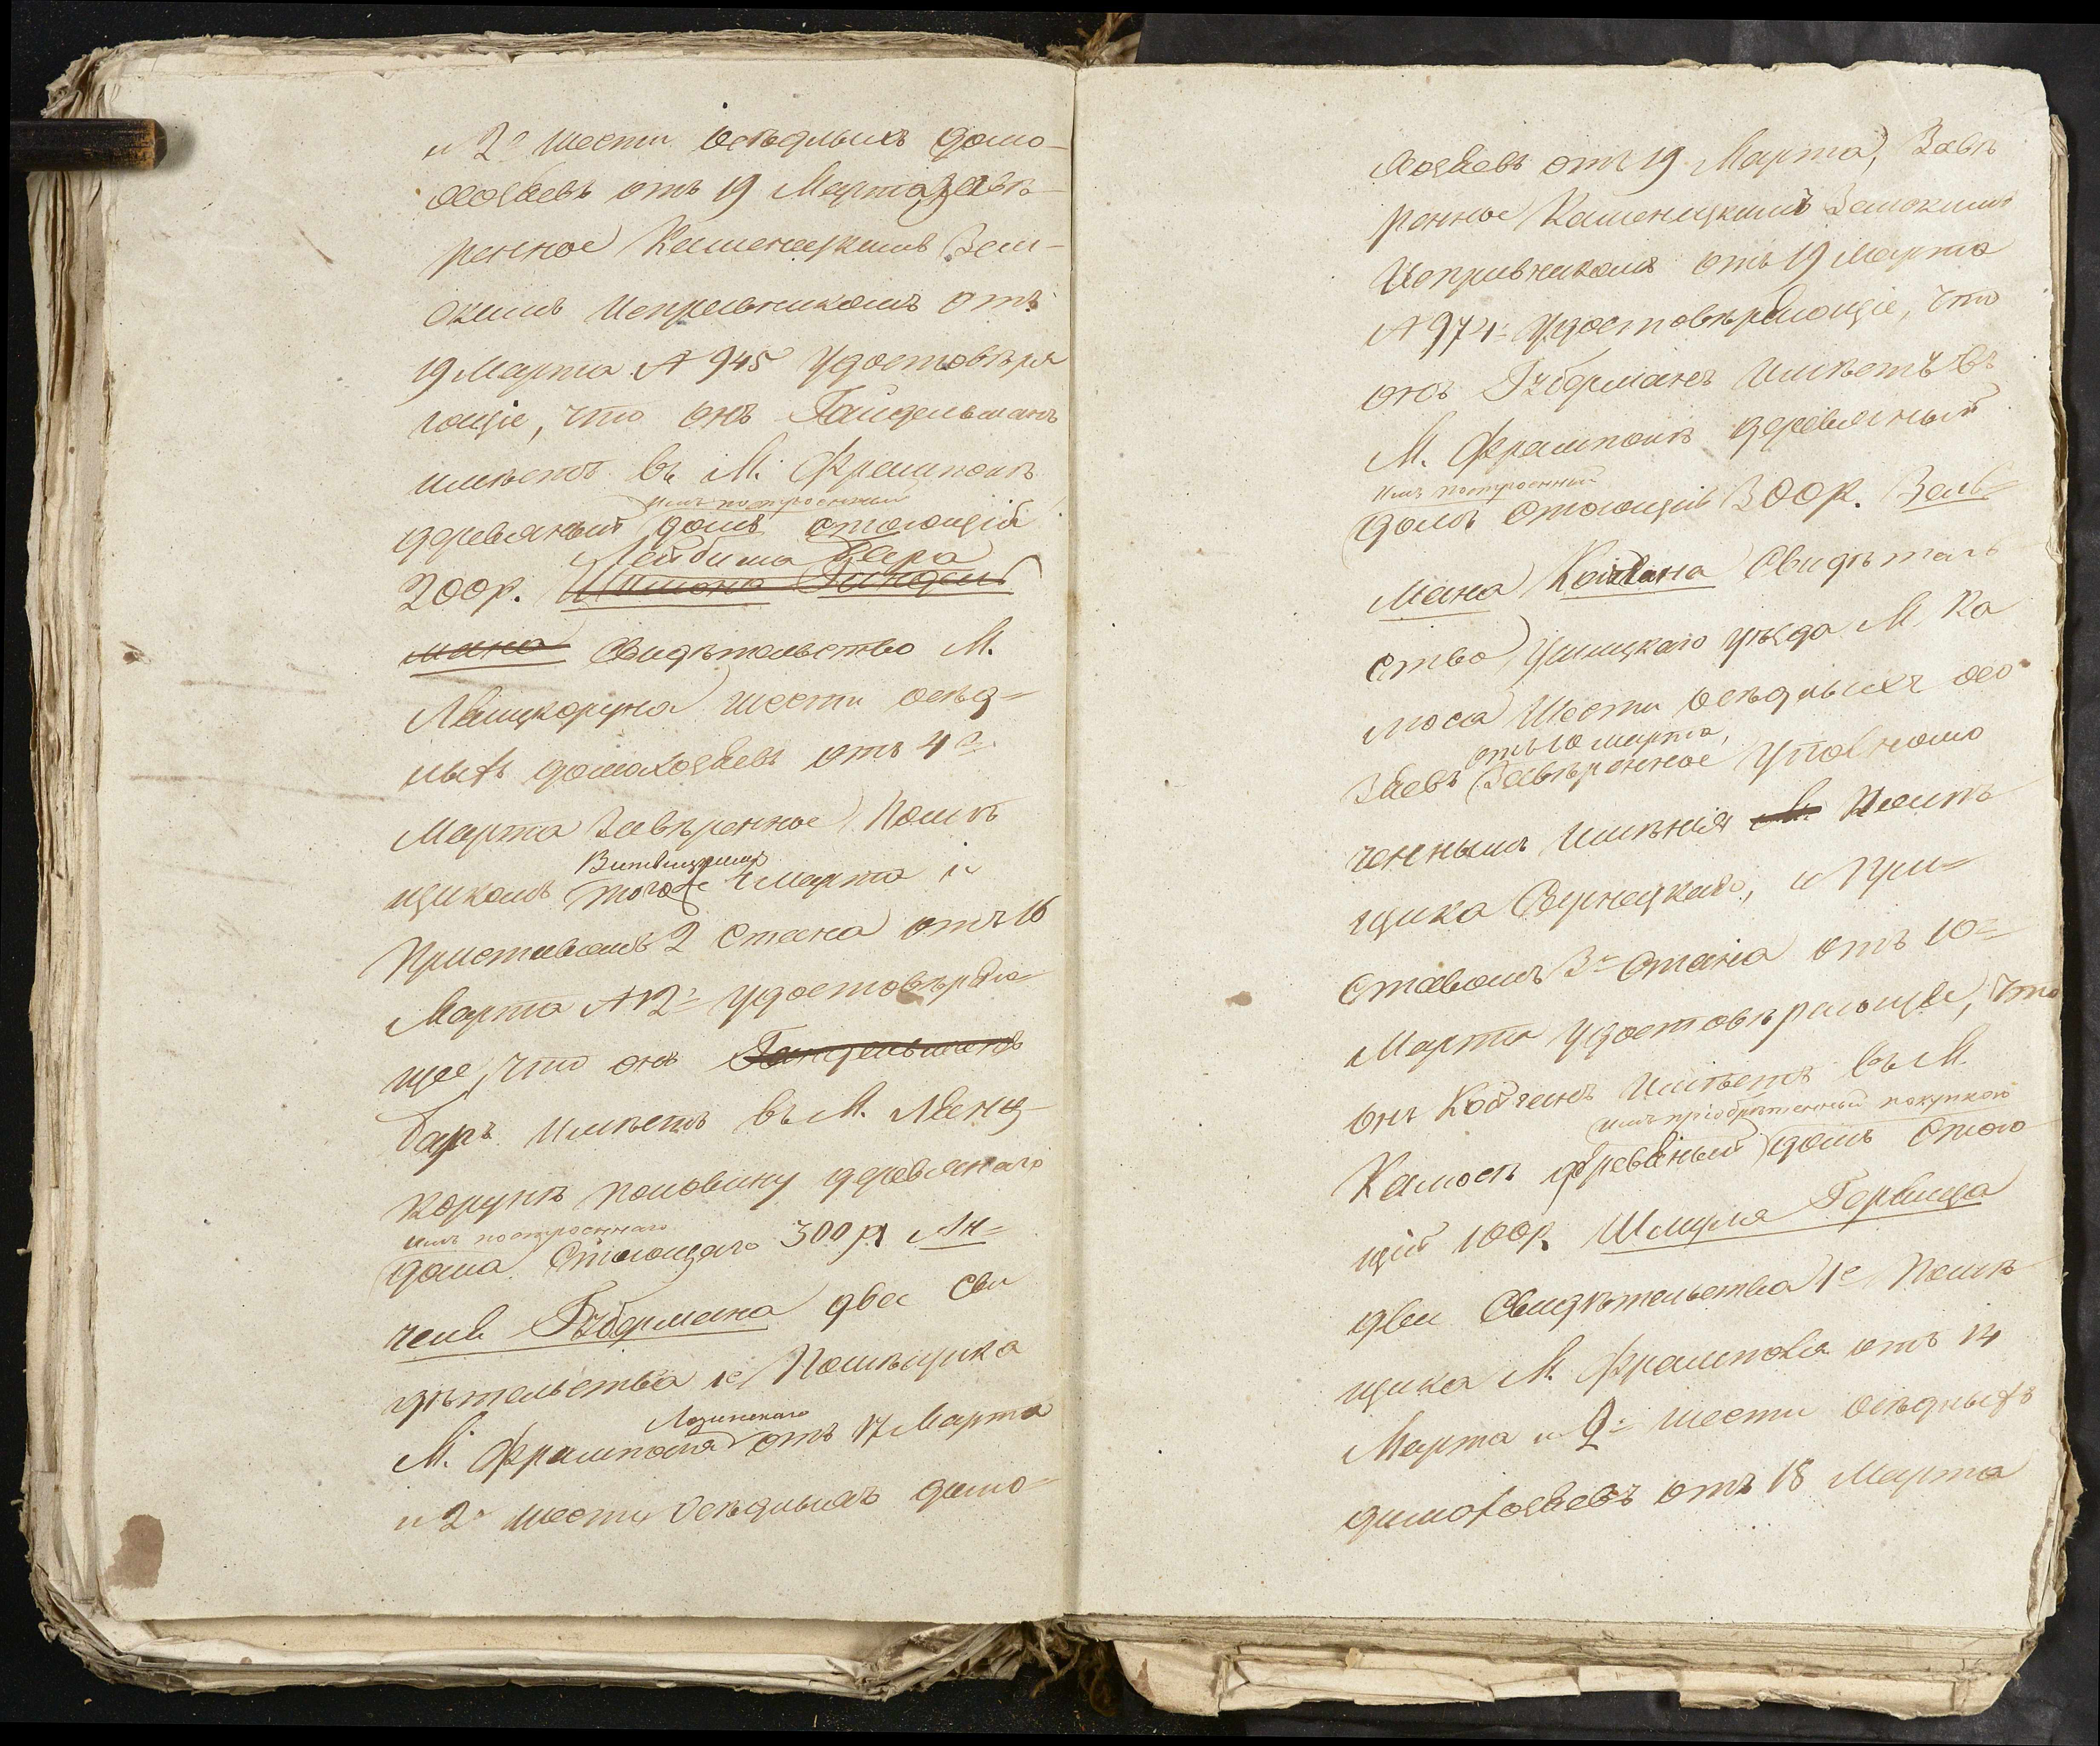 и 2е шести осѣдлыхъ домо-
хозяевъ отъ 19 Марта завѣ-
ренное Каменецкимъ Зем-
скимъ Исправникомъ отъ
19 Марта № 945 удостовѣря
ющіе, что онъ Гандельманъ
имѣетъ въ М. Фрамполѣ
имъ построенный
деревяный домъ стоющій
Лейбиша Бара
200 р. Шимона Гандель
мана Свидѣтельство М.
Лянцкоруна шести осѣд-
лыхъ домохозяевъ отъ 4го
Марта Завѣренное Помѣ
щикомъ тогоже 4 Марта и
Приставомъ 2 Стана отъ 16
Марта № 12 удостовѣряю
щее, что онъ Гандельманъ
Баръ имѣетъ въ М. Лянц-
корунѣ половину деревянаго
имъ построеннаго
дома Стоющаго 300 р. Ян-
келя Губермана два Сви
дѣтельства 1е Помѣщика
М. Фрамполя отъ 17 Марта
и 2е шести Осѣдлыхъ домо-
хозяевъ отъ 19 Марта, Завѣ
ренное Каменецкимъ Земскимъ
Исправникомъ отъ 19 Марта
№ 974 удостовѣряющіе, что
онъ Губерманъ имѣетъ въ
М. Фрамполѣ деревяный
имъ построенный
домъ Стоющій 300 р. Зель-
мана Койчана Свидѣтель
ство Ушицкаго уѣзда М. Ка
люса Шести осѣдлыхъ хо
отъ 10 марта,
зяевъ Завѣренное Уполномо
ченнымъ имѣнія М. Помѣ
щика, и При-
ставомъ 3го Стана отъ 10го
Марта удостовѣряющее, что
онъ Койчанъ имѣетъ въ М.
имъ пріобрѣтенный покупкою
Калюсѣ деревяный домъ Стою
щій 100 р. Шмуля Гервица
два Свидѣтельства 1е Помѣ
щика М. Фрамполя отъ 14
Марта и 2е шести осѣдлыхъ
домохозяевъ отъ 18 Марта